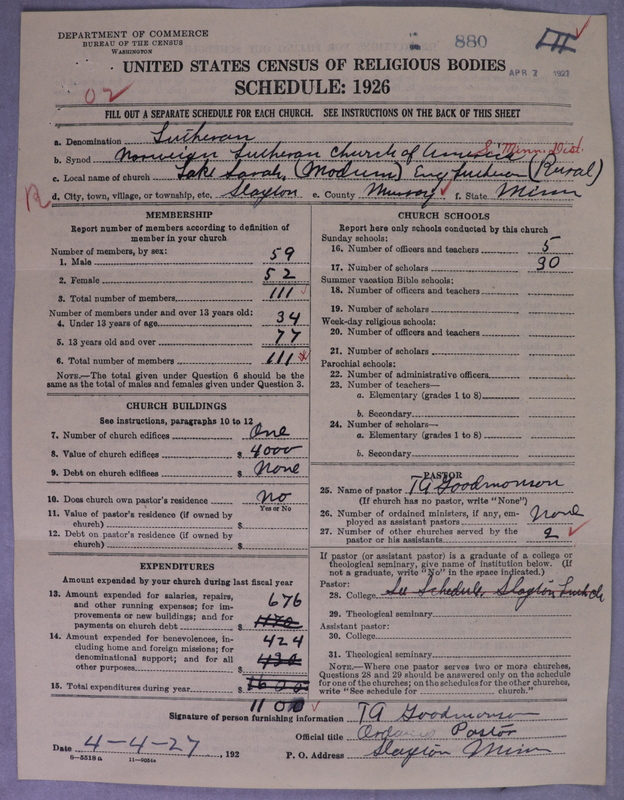 DEPARTMENT OF COMMERCE
BUREAU OF THE CENSUS
WASHINGTON
880
APR 7 1927
UNITED STATES CENSUS OF RELIGIOUS BODIES
SCHEDULE: 1926
02
FILL OUT A SEPARATE SCHEDULE FOR EACH CHURCH. SEE INSTRUCTIONS ON THE BACK OF THIS SHEET
a. Denomination Lutheran
b. Synod Norwegian Lutheran Church of America S. Minn. Dist.
c. Local name of church Lake Sarah, (Modum) Eng Lutheran (Rural)
R
d. City, town, village, or township, etc. Slayton e. County Murray f. State Minn
MEMBERSHIP
Report number of members according to definition of
member in your church
Number of members, by sex:
1. Male 59
2. Female 52
3. Total number of members 111
Number of members under and over 13 years old:
4. Under 13 years of age 34
5. 13 years old and over 77
6. Total number of members 111
NOTE.—The total given under Question 6 should be the
same as the total of males and females given under Question 3.
CHURCH BUILDINGS
See instructions, paragraphs 10 to 12
7. Number of church edifices One
8. Value of church edifices $ 4000
9. Debt on church edifices $ None
10. Does church own pastor's residence No
Yes or No
11. Value of pastor's residence (if owned by
church) $
12. Debt on pastor's residence (if owned by
church) $
EXPENDITURES
Amount expended by your church during last fiscal year
13. Amount expended for salaries, repairs,
and other running expenses; for im-
provements or new buildings; and for
payments on church debt $ 676
14. Amount expended for benevolences, in-
cluding home and foreign missions; for
denominational support; and for all
other purposes $ 424
15. Total expenditures during year $
1100
CHURCH SCHOOLS
Report here only schools conducted by this church
Sunday schools:
16. Number of officers and teachers 5
17. Number of scholars 30
Summer vacation Bible schools:
18. Number of officers and teachers
19. Number of scholars
Week-day religious schools:
20. Number of officers and teachers
21. Number of scholars
Parochial schools:
22. Number of administrative officers
23. Number of teachers—
a. Elementary (grades 1 to 8)
b. Secondary
24. Number of scholars—
a. Elementary (grades 1 to 8)
b. Secondary
PASTOR
25. Name of pastor TA Goodmonson
(If church has no pastor, write "None")
26. Number of ordained ministers, if any, em-
ployed as assistant pastors None
27. Number of other churches served by the
pastor or his assistants 2
If pastor (or assistant pastor) is a graduate of a college or
theological seminary, give name of institution below. (If
not a graduate, write "No" in the space indicated.)
Pastor:
28. College See Schedule, Slayton Luth ch
29. Theological seminary
Assistant pastor:
30. College
31. Theological seminary
NOTE.—Where one pastor serves two or more churches,
Questions 28 and 29 should be answered only on the schedule
for one of the churches; on the schedules for the other churches,
write "See schedule for church."
Signature of person furnishing information TA Goodmonson
Official title Pastor
Date 4-4-27, 192
P. O. Address Slayton Minn
8—5518 a